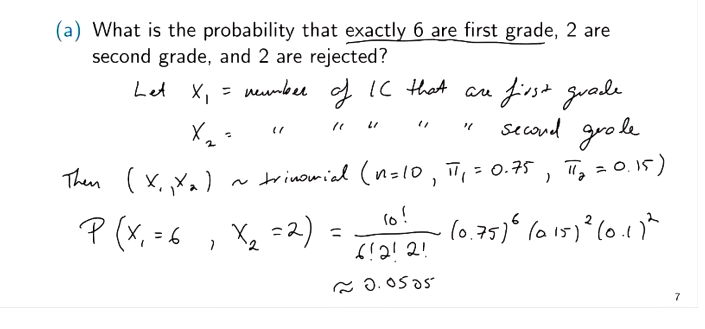 (a) What is the probability that exactly 6 are first grade, 2 are
second grade, and 2 are rejected?
Let X₁ = number of IC that are first grade
X₂ = " " " " " second grade
Then (X₁, X₂) ~ trinomial (n=10, π₁ = 0.75, π₂ = 0.15)
P(X₁ = 6, X₂ = 2) = 10! / 6! 2! 2! (0.75)⁶ (0.15)² (0.1)²
≈ 0.0505
7